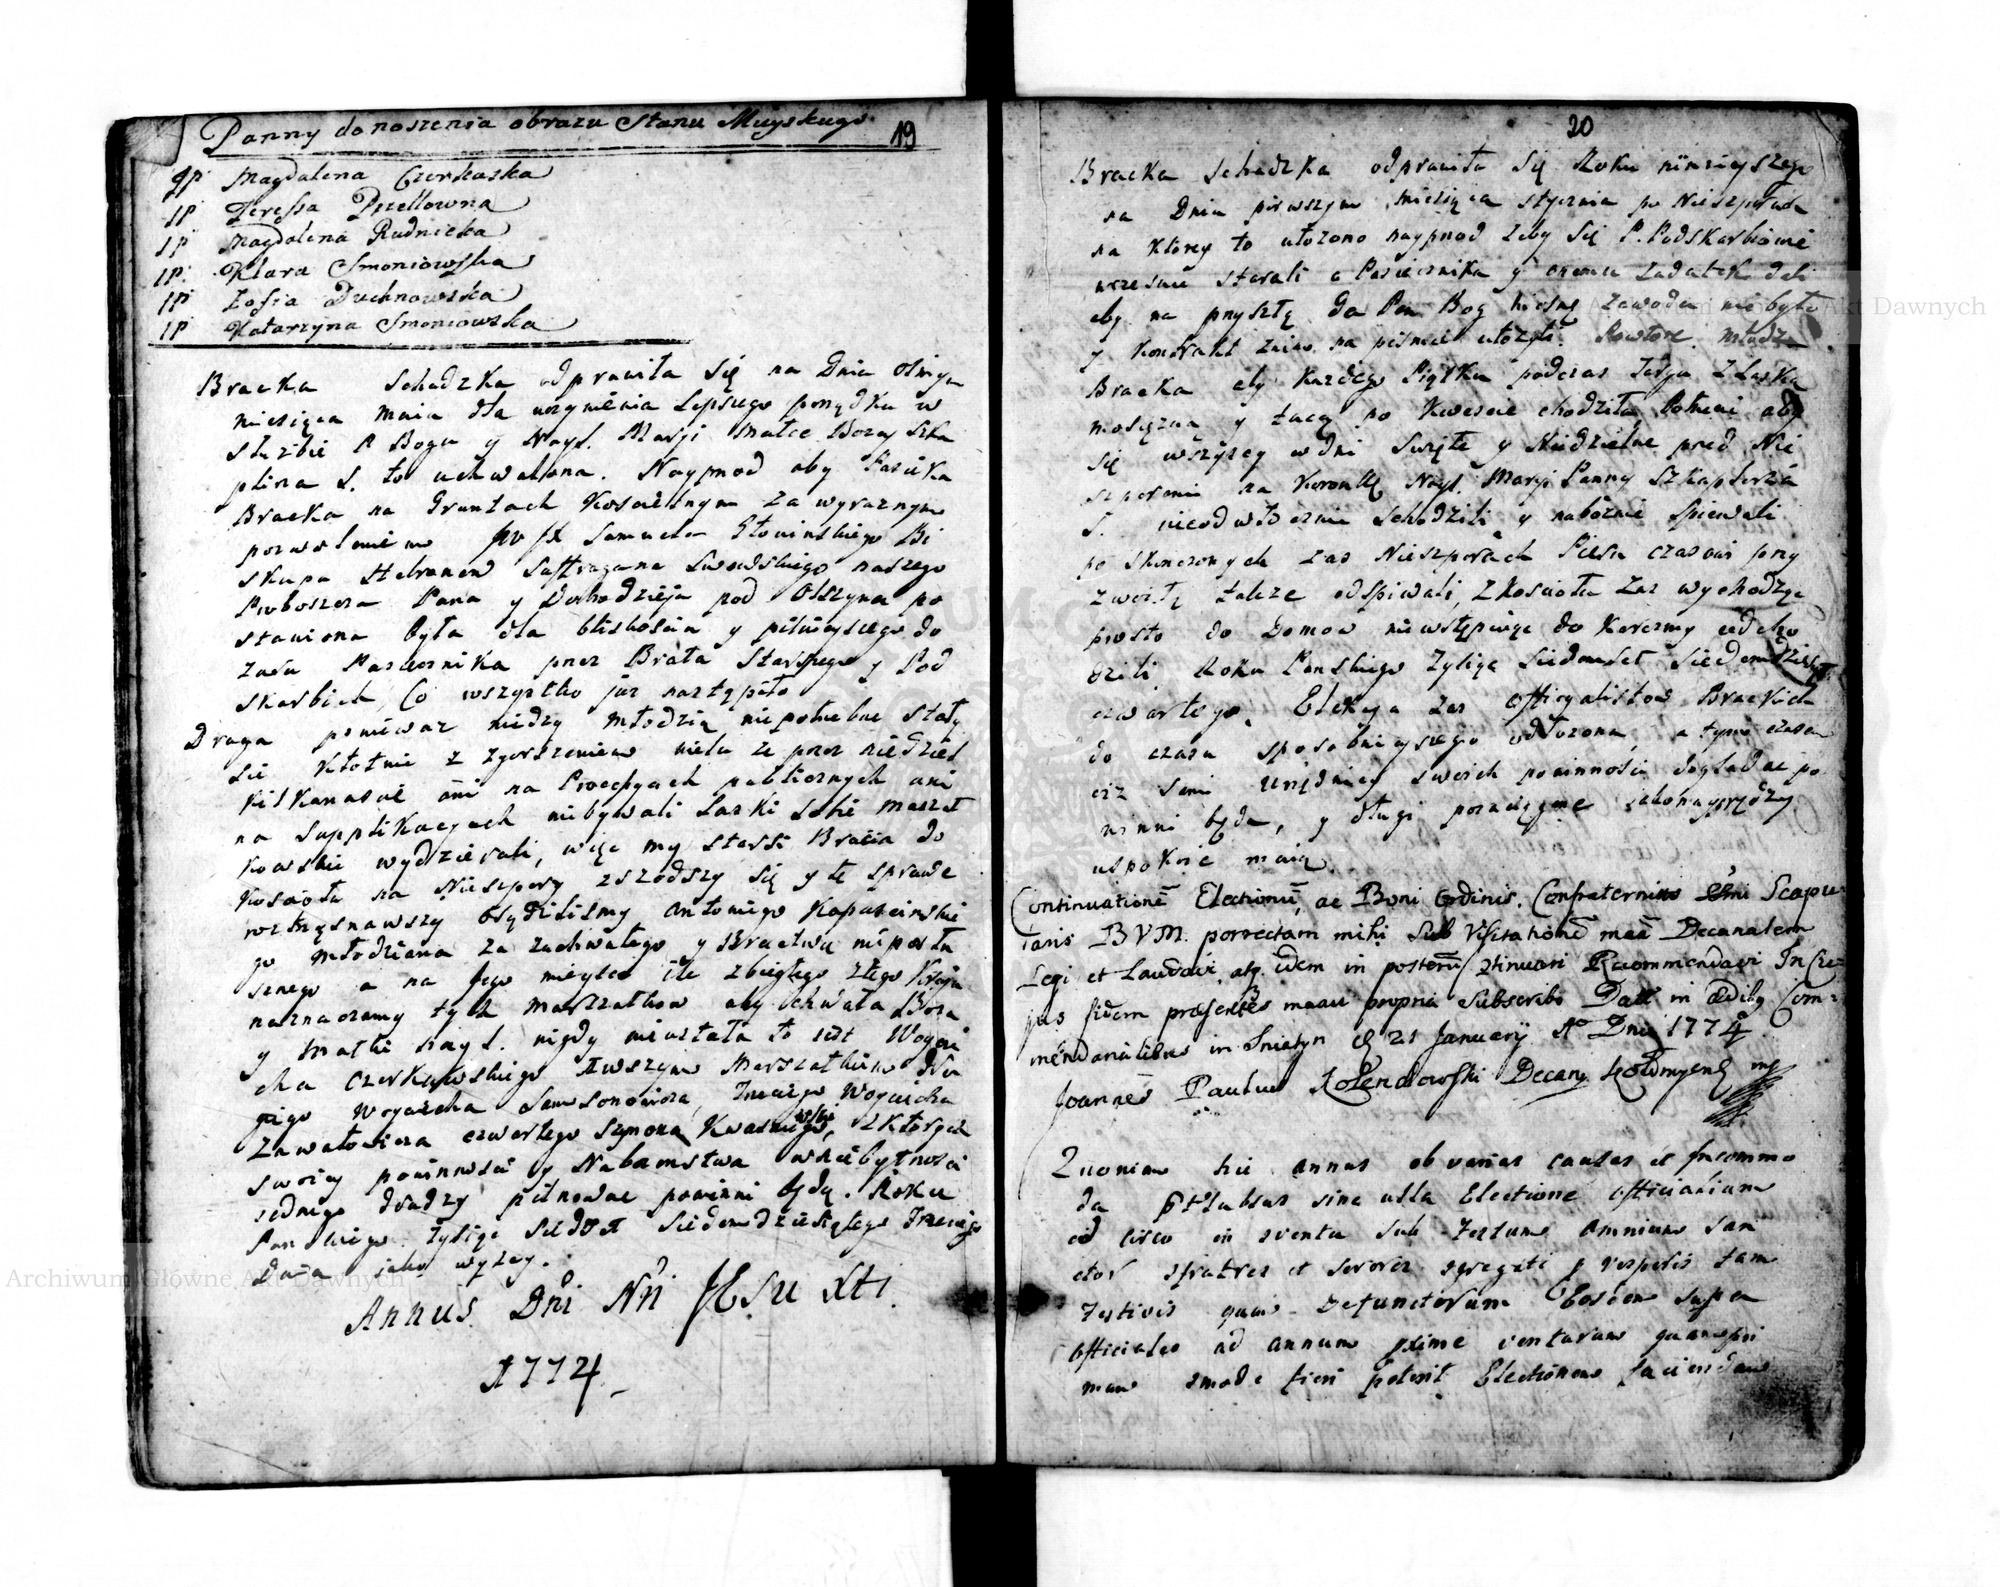 Panny do noszenia obrazu Stanu Mieyskiego
19
JP Magdalena Czerkaska
JP Teressa Pszellowna
JP Magdalena Rudnicka
JP. Klara Smoniowska
JP Zofia Duchnowska
JP Katarzyna Smoniowska
Bracka Schadzka odprawiła się na Dniu osmym
miesiąca maia dla uczynienia Lepszego porządku w
służbie P Bogu y Nays. Maryi Matce Bozey Szka
plirza S. to uchwalona. Nayprzod aby Pasieka
Bracka na Gruntach Koscielnym za wyraznym
pozwoleniem Samuela Głowinskiego Bi
skupa Hebronen Suffragana Lwowskiego naszego
Proboszcza Pana y Dobrodzieja pod Olszyna po
stawiona była dla bliskoscia y pilnieyszego do
zoru Pasiecznika przez Brata Starszego y Pod
skarbich, Co wszystko juz nastąpiło
Druga poniewaz miedzy młodzią niepotrzebne stały
się Kłotnie z zgorszeniem wielu ze przez niedziel
kilkanascie ani na Processyach publicznych ani
na Supplikacyach niebywali Laski sobie marszał
kowskie wydzierali, więc my starsi Bracia do
Koscioła na Nieszpory zszodszy się y te sprawe
roztrząsnawszy osądzilismy Antoniego Kapuscinskie
go młodziana za zuchwałego y Bractwu niposłu
sznego a na Jego mieysce iłe zbiegłego złego
naznaczamy tych marszałkow aby chwała Boza
y Matki nays. nigdy nieustała to jest Woycie
cha Czerkawskiego Pierwszym Marszałkiem dru
giego Woyciecha Samsonowicza, Trzeciego Woyciecha
Zawałowicza czwartego Szymona Kwasniewskiego, z ktorych
swoiey powinnosci y Nabozenstwa w niebytnosci
jednego drudzy pilnować powinni będą. Roku
Panskiego Tysiąc siedmset siedemdziesiątego Trzeciego
Dnia jako wyzey.
Annus Dni Nri JESu Xti.
1774
20
Bracka Schadzka odprawiła się Roku ninieyszego
na Dniu pierwszym miesiąca stycznia po Nieszporach
na ktorey to ułozono nayprzod zeby się P. Podskarbiowie
wczesnie starali o Pasiecznika y onemu zadatek dali
aby na przyszłą Da Pan Bog wiosnę zawodu nie było
y kontrakt znim na pismie ułozyli. Powtore młodz
Bracka aby kazdego Piątku podczas Targu z Laską
mosięzną y tacą po Kwescie chodziła, Potrzecie aby
się wszyscy w dni Swięte y Niedzielne przed Nie
szporami na Koronkę Nays. Maryi Panny Szkaplerza
S. nieodwłocznie schodzili y naboznie spiewali
po skonczonych zas Nieszporach Piesn czasowi przy
zwoitą takze odspiwali, z Koscioła zas wychodząc
prosto do Domow nie wstępuiąc do Karczmy odcho
dzili Roku Panskiego Tysiąc Siedmset Siedemdziesiąt
czwartego. Elekcya zas officyalistow Brackich
do czasu sposobnieyszego odłozona, a tym czasem
ciz sami urzędnicy swoich powinnosci doglądac po
winni będa, y długi poraciągane jako nayprędzey
uspokoic maią
Continuatione Electionu, ac Boni Ordinis. Confraternitas Smi Scapu-
laris BVM. porrectam mihi sub Visitatione mea Decanalem
Legi et Laudavi, atq. idem in posteru continuari Recommendavi In Cu-
jus fidem praesentes manu propria Subscribo Datt in Aedibq Com-
mendarialibus in Sniatyn d 21 Januarij Ao Dni 1774
Joannes Paulus Kolendowski Decanq Kołomyen mp
Quoniam hic annus ob varias causas et Incommo
da est lapsus sine ulla Electione officialium
id circo in eventu sub Festum Omnium San
ctor confratres et Sorores congregati p vesperis tam
Festivis quam Defunctorum Eosdem supra
officiales ad annum proxime venturum quampri
mum commode fieri poterit Electionem faciendam